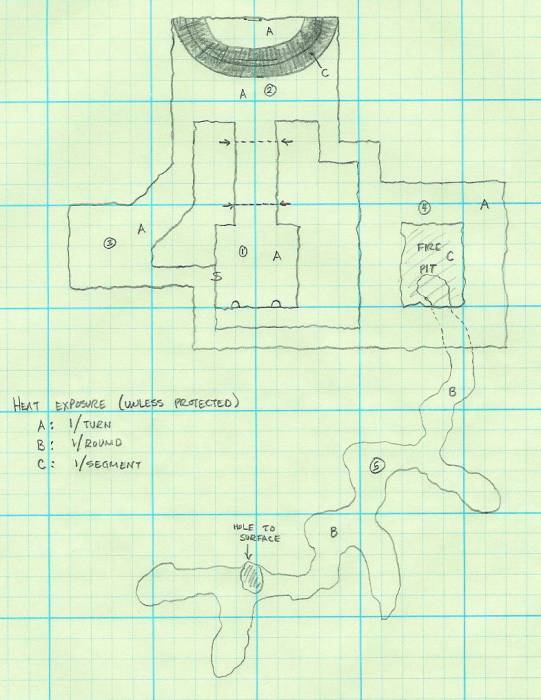 A
C
A ②
③ A
④ A
① A
FIRE
PIT C
S
B
HEAT EXPOSURE (UNLESS PROTECTED)
A: 1/TURN
B: 1/ROUND
C: 1/SEGMENT
⑤
HOLE TO
SURFACE
B